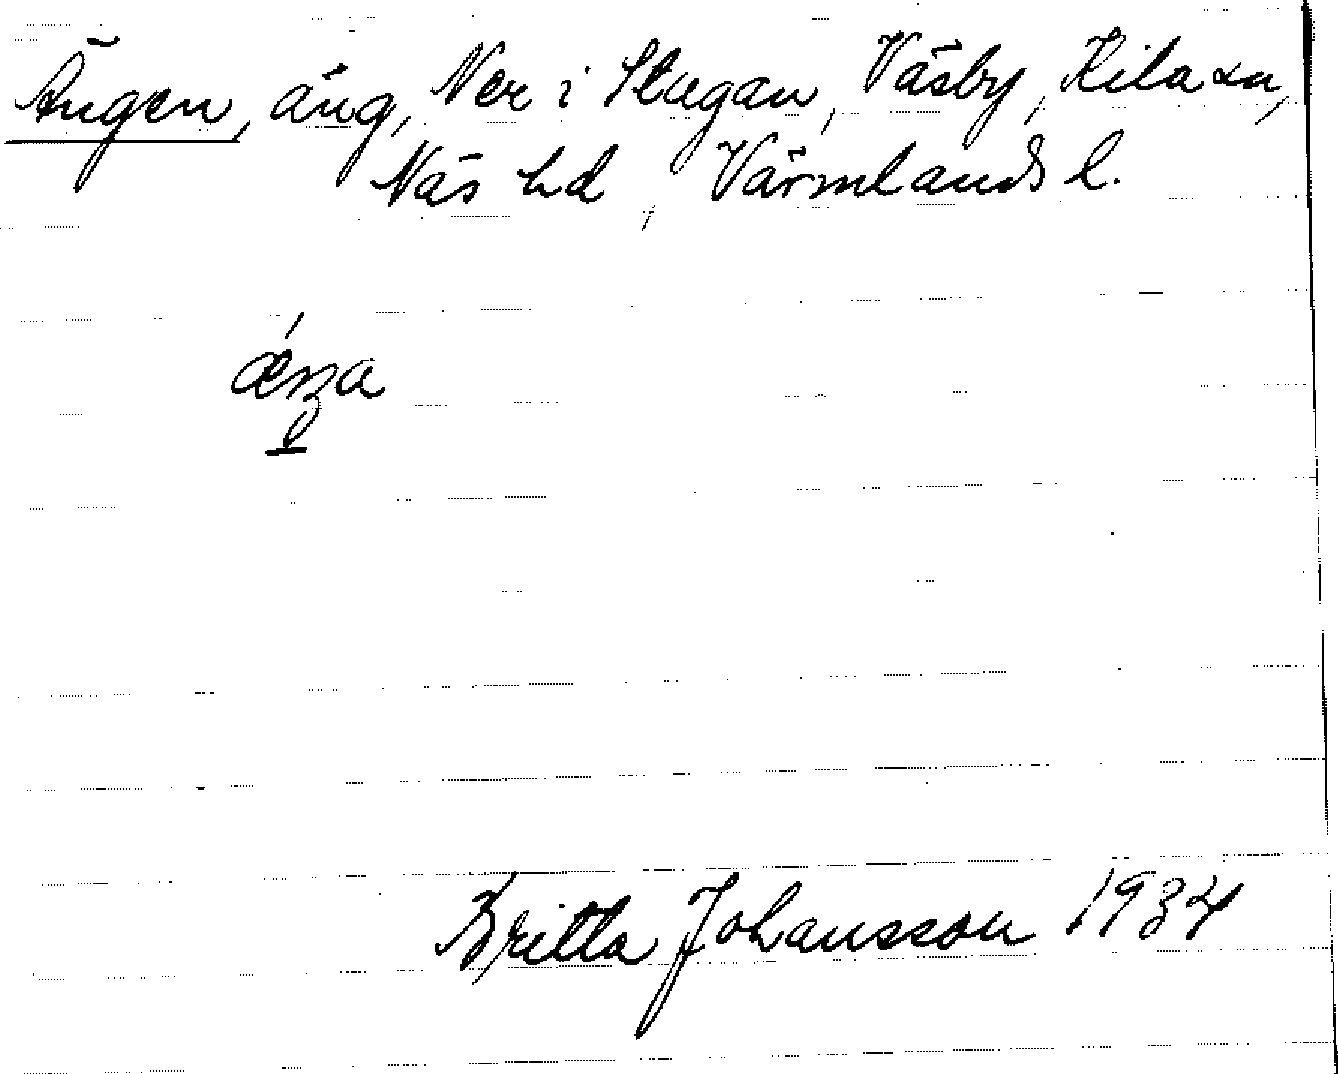 Ängen, äng, Ner i Stugan, Väsby, Kila sn,
Näs hd, Värmlands l.
Britta Johansson 1934